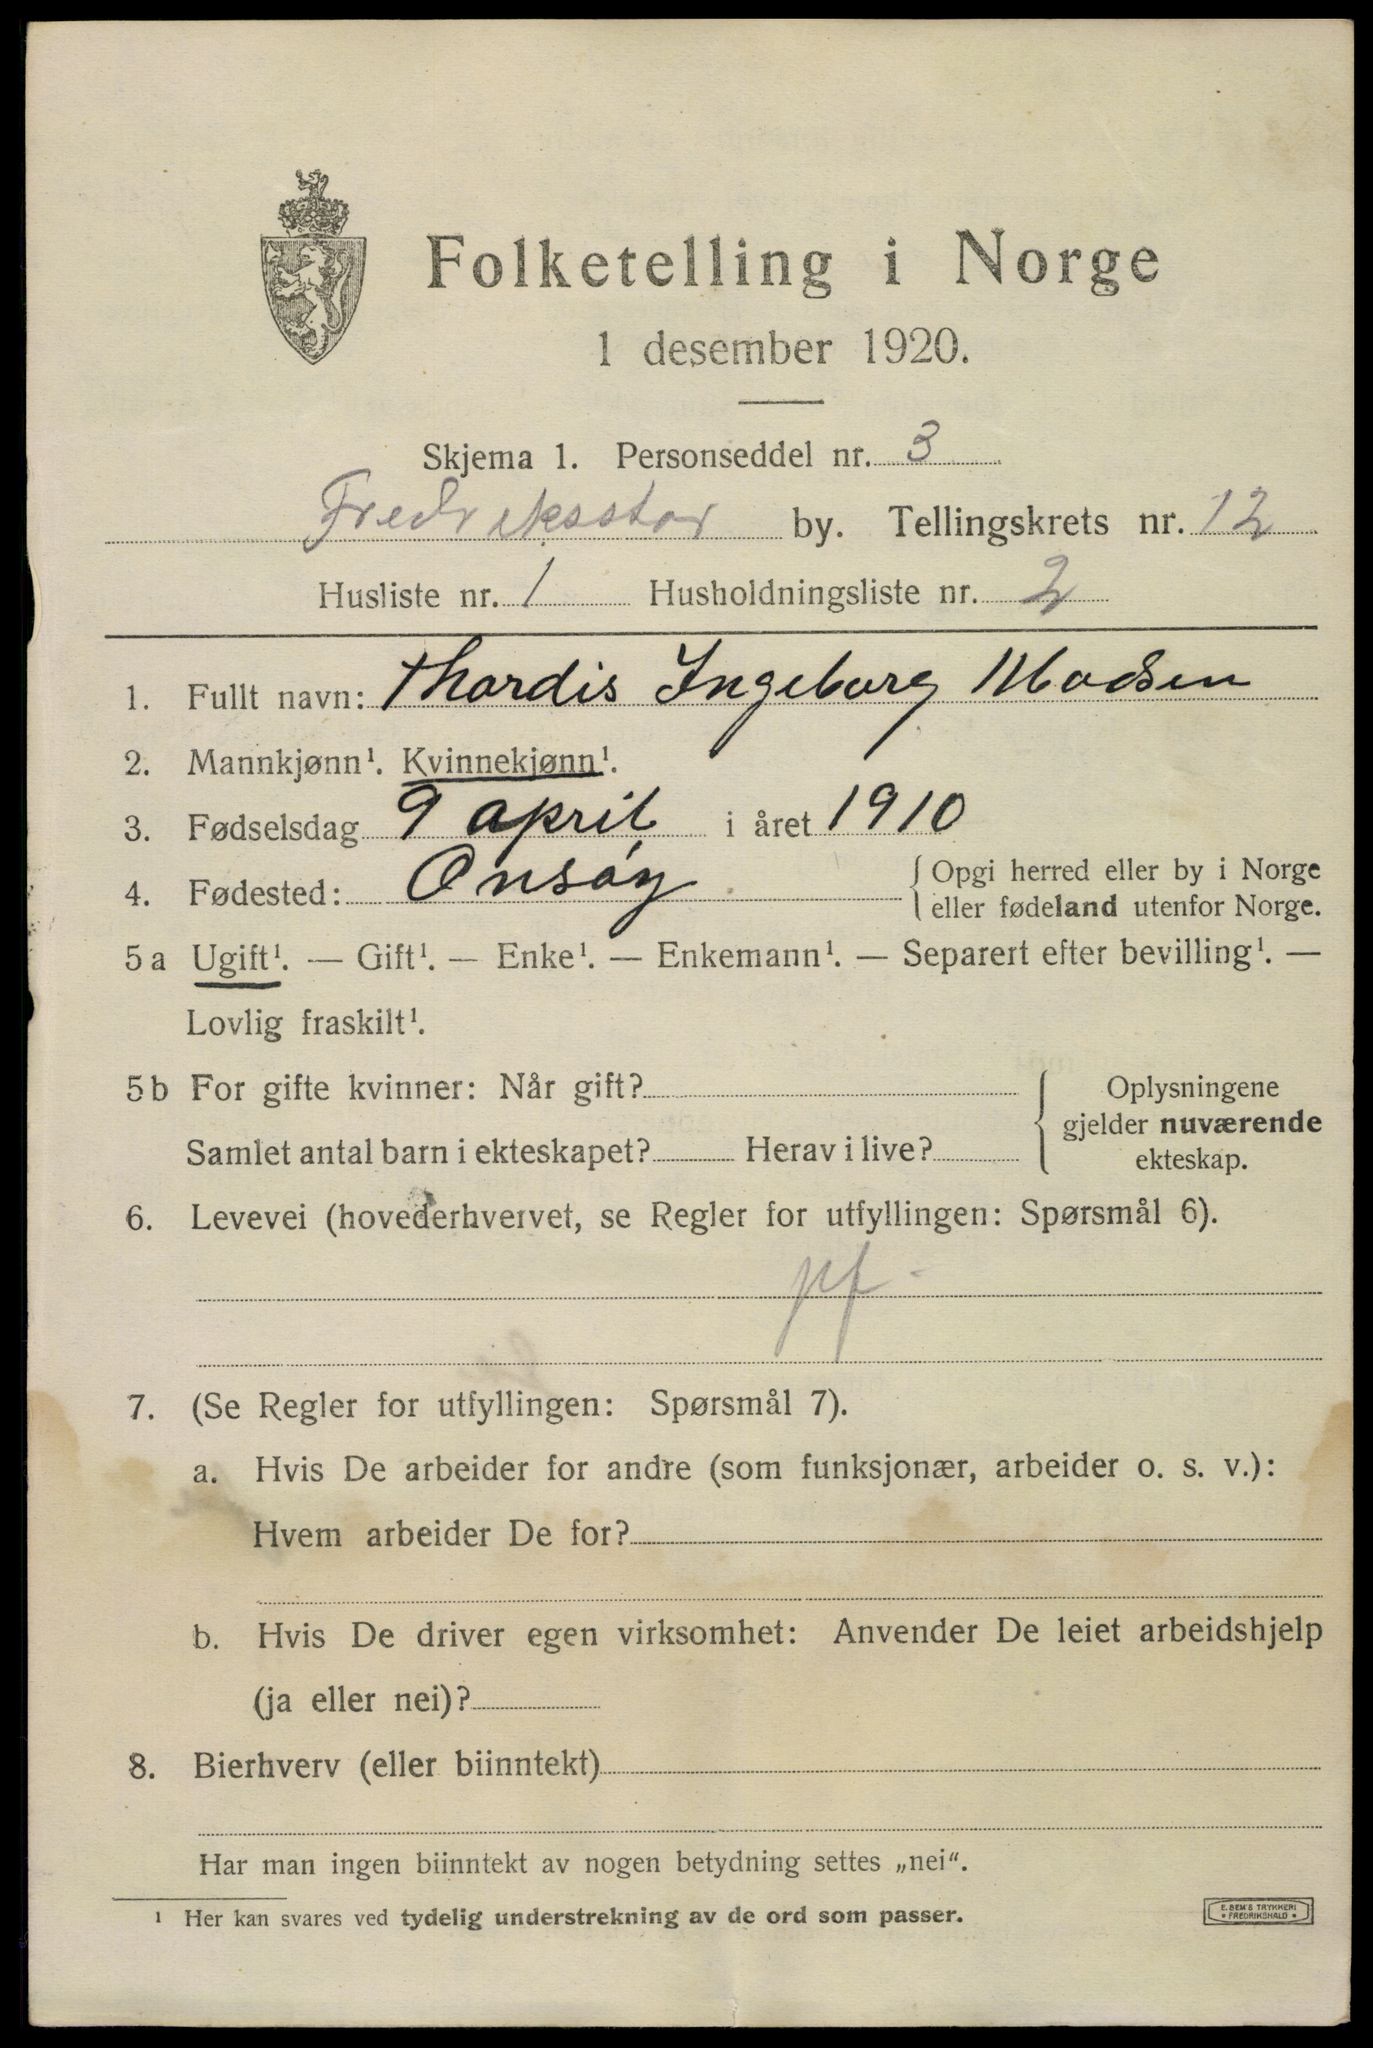 Folketelling i Norge
1 desember 1920.
Skjema 1. Personseddel nr. 3
Fredriksstad by. Tellingskrets nr. 12
Husliste nr. 1 Husholdningsliste nr. 2
1. Fullt navn: Thordis Ingeborg Madsen
2. Mannkjønn¹. Kvinnekjønn¹.
3. Fødselsdag 9 april i året 1910
4. Fødested: Onsøy { Opgi herred eller by i Norge
eller fødeland utenfor Norge.
5 a Ugift¹. — Gift¹. — Enke¹. — Enkemann¹. — Separert efter bevilling¹. —
Lovlig fraskilt¹.
5 b For gifte kvinner: Når gift? { Oplysningene
gjelder nuværende
Samlet antal barn i ekteskapet? Herav i live? ekteskap.
6. Levevei (hovederhvervet, se Regler for utfyllingen: Spørsmål 6).
pf -
7. (Se Regler for utfyllingen: Spørsmål 7).
a. Hvis De arbeider for andre (som funksjonær, arbeider o. s. v.):
Hvem arbeider De for?
b. Hvis De driver egen virksomhet: Anvender De leiet arbeidshjelp
(ja eller nei)?
8. Bierhverv (eller biinntekt)
Har man ingen biinntekt av nogen betydning settes „nei“.
¹ Her kan svares ved tydelig understrekning av de ord som passer.
E. SEM'S TRYKKERI
• FREDRIKSHALD •